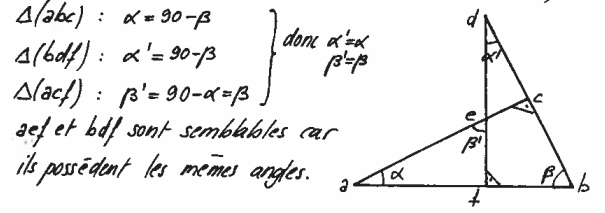 Δ(abc) : α = 90-β
Δ(bdf) : α' = 90-β
Δ(acf) : β' = 90-α = β
donc α'=α
β'=β
aef et bdf sont semblables car
ils possèdent les mêmes angles.
d
α'
c
e
β'
a
α
β
b
f